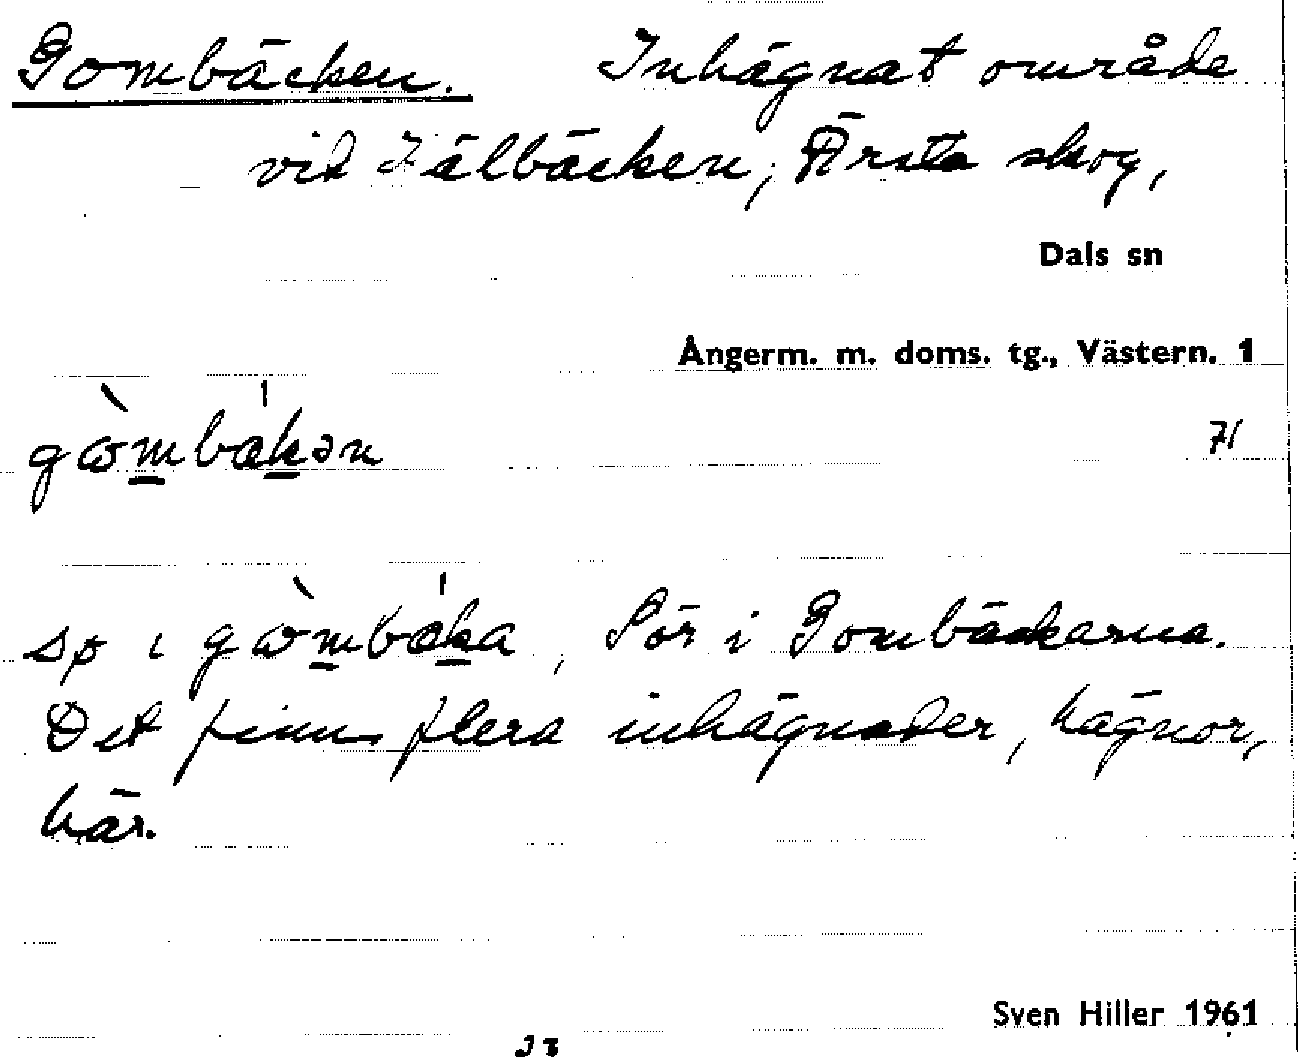 Gombäcken. Inhägnat område
vid Fälbäcken, Ärsta skog,
Dals sn
Ångerm. m. doms. tg., Västern. 1
gòmbäkən
71
sp i gòmbäka, Sör i Gombäckarna.
Det finns flera inhägnader, hägnor,
här.
Sven Hiller 1961